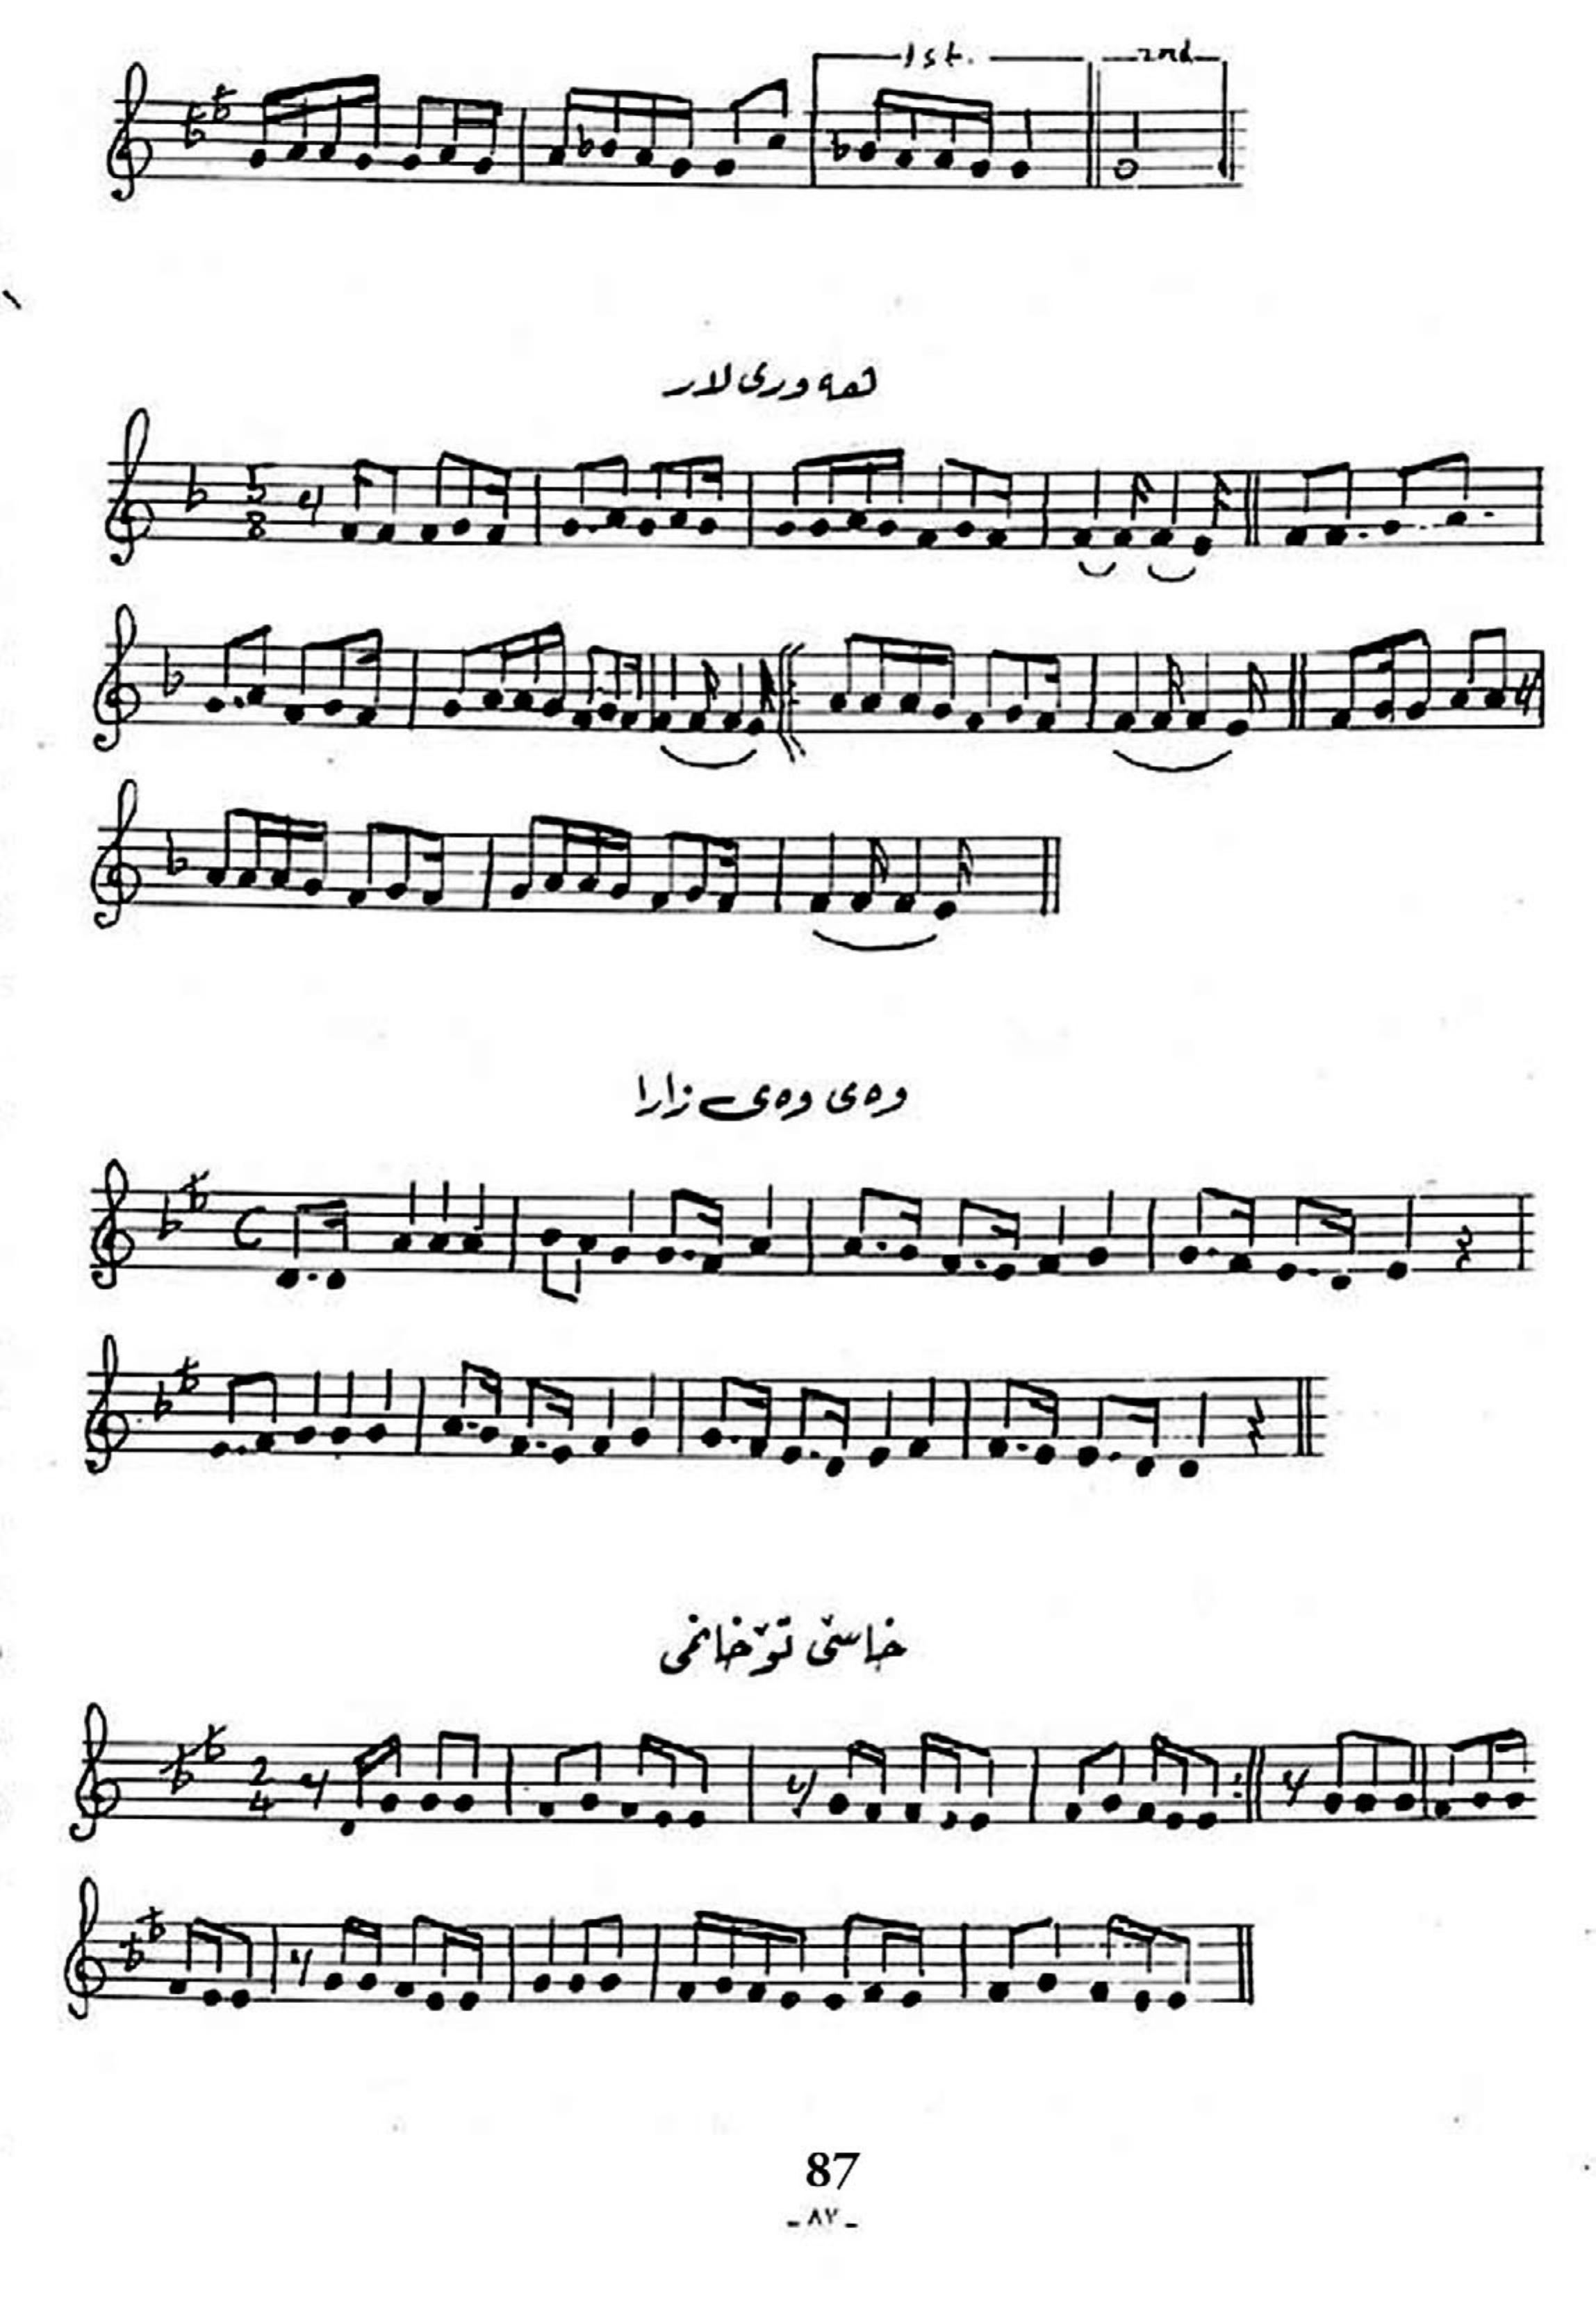 1st. 2nd
هەوری لار
5
8
وەی وەی زارا
C
خاسێ تۆ خانمی
2
4
87
- ٨٧ -